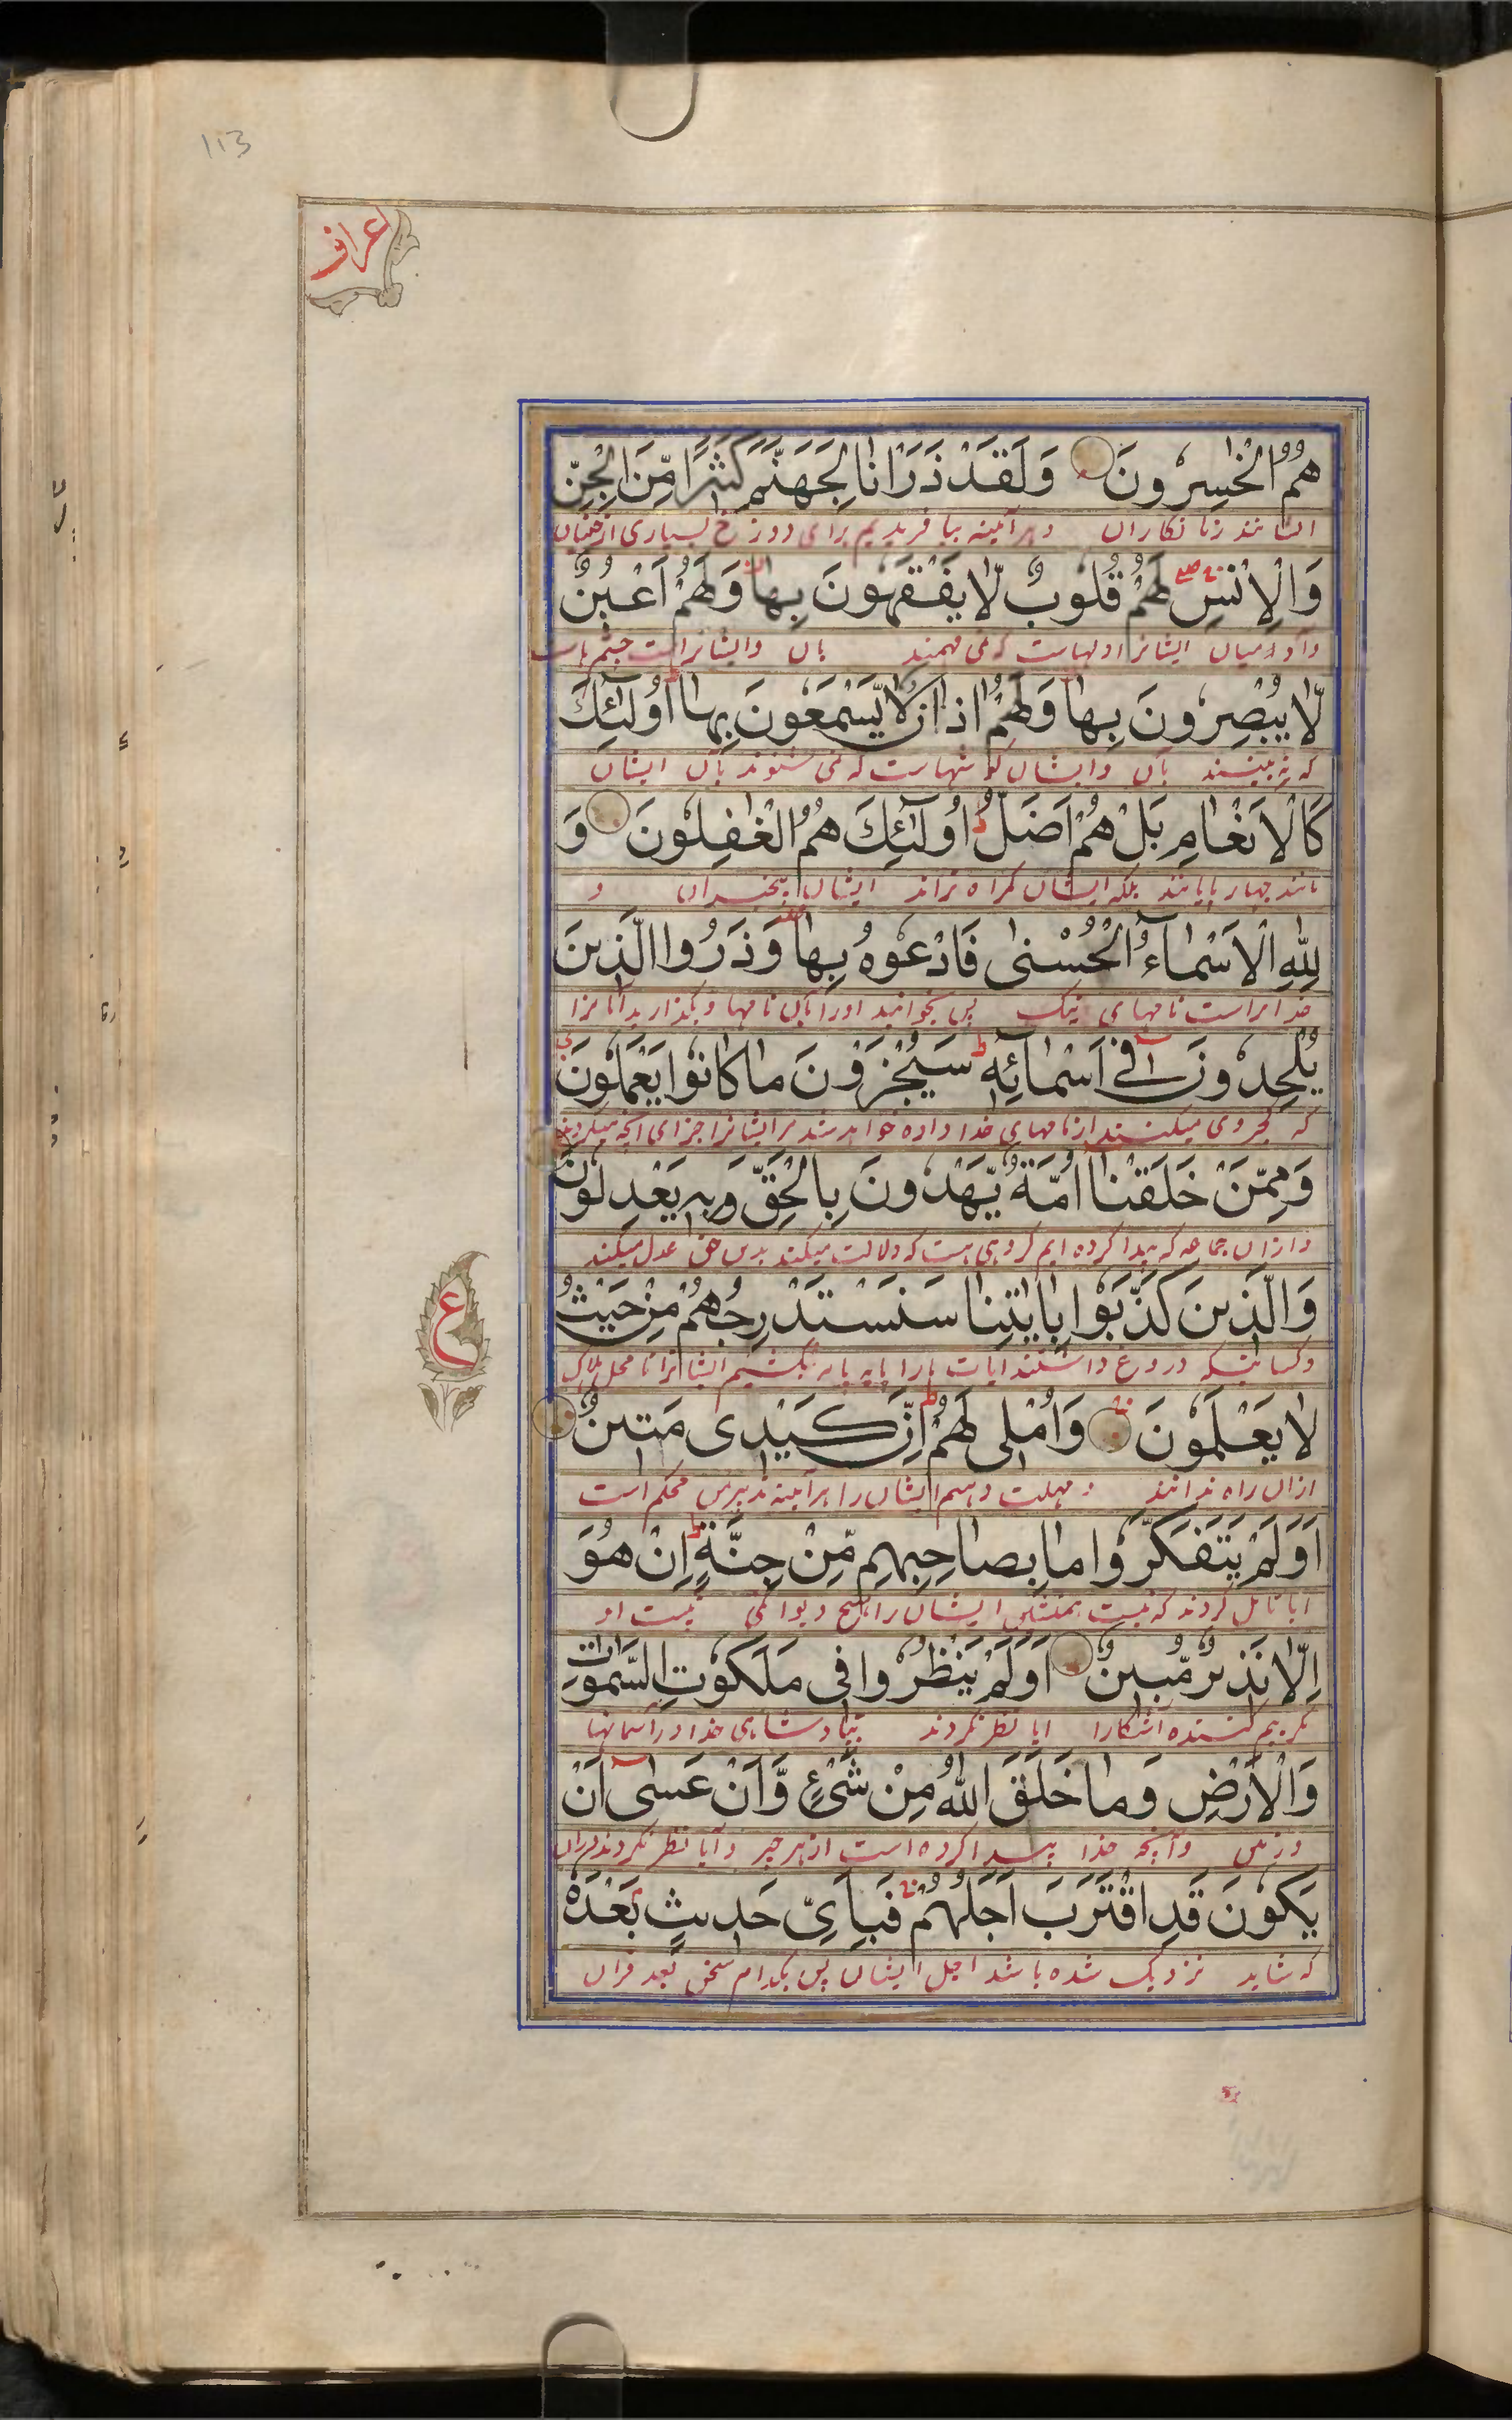 113
اعراف
هُمُ الْخٰسِرُونَ وَلَقَدْ ذَرَاْنَا لِجَهَنَّمَ كَثِیْرًا مِّنَ الْجِنِّ
ایشانند زیانکاران و هر آئینه بیافریدیم برای دوزخ بسیاری از جنیان
وَالْاِنْسِ لَهُمْ قُلُوبٌ لَّا یَفْقَهُونَ بِهَا وَلَهُمْ اَعْیُنٌ
و آدمیان ایشانرا دلهاست که نمی فهمند بآن و ایشانراست چشمهاست
لَّا یُبْصِرُونَ بِهَا وَلَهُمْ اٰذَانٌ لَّا یَسْمَعُونَ بِهَا اُولٰٓئِكَ
که نه بینند بآن و ایشان گوشهاست که نمی شنوند بآن ایشان
كَالْاَنْعَامِ بَلْ هُمْ اَضَلُّ اُولٰٓئِكَ هُمُ الْغٰفِلُونَ وَ
مانند چهارپایانند بلکه ایشان گمراه تراند ایشان بیخبران و
لِلّٰهِ الْاَسْمَآءُ الْحُسْنٰی فَادْعُوهُ بِهَا وَذَرُوا الَّذِینَ
خدا براست نامهای نیک پس بخوانید اورا بآن نامها و بگذارید آنانرا
یُلْحِدُونَ فِیٓ اَسْمَآئِهٖ سَیُجْزَوْنَ مَا كَانُوا یَعْمَلُونَ
که کجروی میکنند از نامهای خدا داده خواهد شد مر ایشانرا جزای آنچه میکردند
وَمِمَّنْ خَلَقْنَآ اُمَّةٌ یَّهْدُونَ بِالْحَقِّ وَبِهٖ یَعْدِلُونَ
و ازان جماعه که پیدا کرده ایم گروهی هست که دلالت میکند بدین حق عدل میکند
وَالَّذِینَ كَذَّبُوا بِاٰیٰتِنَا سَنَسْتَدْرِجُهُمْ مِنْ حَیْثُ
و کسانیکه دروغ داشتند ایات مارا پایه پایه بکشیم ایشانرا تا محل هلاک
ع
لَا یَعْلَمُونَ وَاُمْلِی لَهُمْ اِنَّ كَیْدِی مَتِینٌ
ازان راه ندانند و مهلت دهیم ایشان را هر آئینه تدبیر من محکم است
اَوَلَمْ یَتَفَكَّرُوا مَا بِصَاحِبِهِمْ مِّنْ جِنَّةٍ اِنْ هُوَ
ایا تامل نکردند که نیست همنشین ایشان را هیچ دیوانگی نیست او
اِلَّا نَذِیرٌ مُّبِینٌ اَوَلَمْ یَنْظُرُوا فِی مَلَكُوتِ السَّمٰوٰتِ
مگر بیم کننده آشکارا ایا نظر نکردند بپادشاهی خدا در آسمانها
وَالْاَرْضِ وَمَا خَلَقَ اللّٰهُ مِنْ شَیْءٍ وَّاَنْ عَسٰٓی اَنْ
و زمین و آنچه خدا پیدا کرده است از هر چیز و آیا نظر نکردند دران
یَّكُونَ قَدِ اقْتَرَبَ اَجَلُهُمْ فَبِاَیِّ حَدِیثٍ بَعْدَهٗ
که شاید نزدیک شده باشد اجل ایشان پس بکدام سخن بعد قران